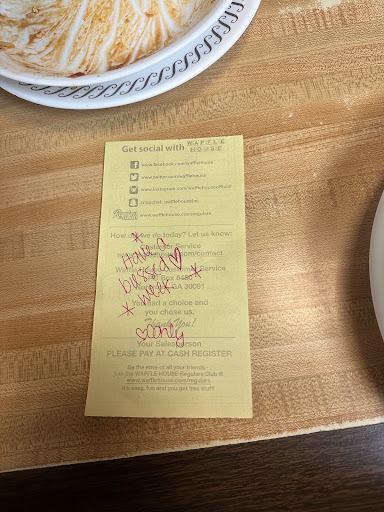 Get social with WAFFLE HOUSE
www.facebook.com/wafflehouse
www.twitter.com/wafflehouse
www.instagram.com/wafflehouseofficial
snapchat: wafflehouseinc
Regulars www.wafflehouse.com/regulars
How did we do today? Let us know:
Customer Service
/contact
Waffle House Customer Service
PO Box 6450
GA 30091
You had a choice and
you chose us.
Thank You!
Your Salesperson
PLEASE PAY AT CASH REGISTER
Be the envy of all your friends -
Join the WAFFLE HOUSE Regulars Club @
www.wafflehouse.com/regulars.
It's easy, fun and you get free stuff!
Have a
blessed
week